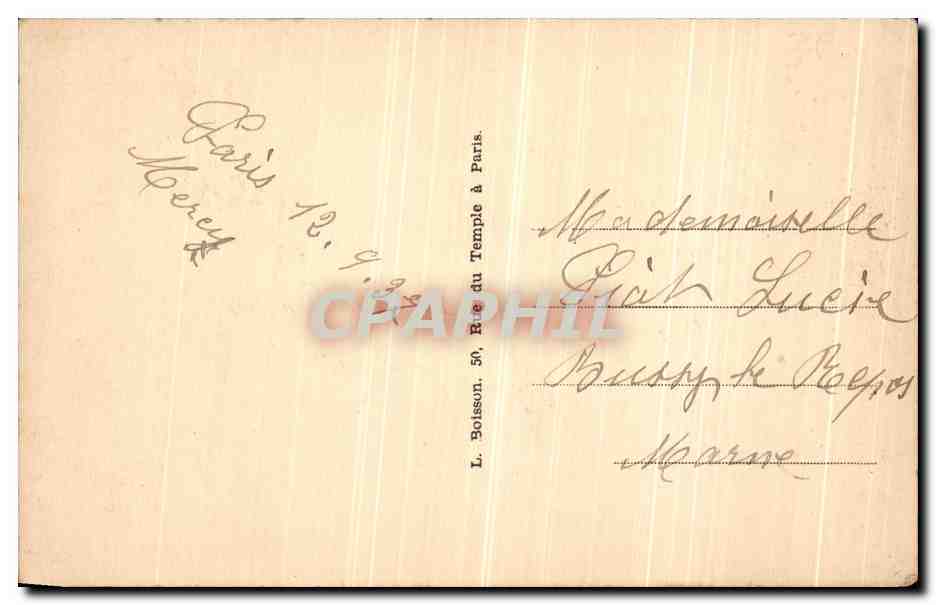 Paris 12. 9.
Mercy
L. Boisson. 50, Rue du Temple à Paris.
Mademoiselle
Piat Lucie
Bussy le Repos
Marne
CPAPHIL